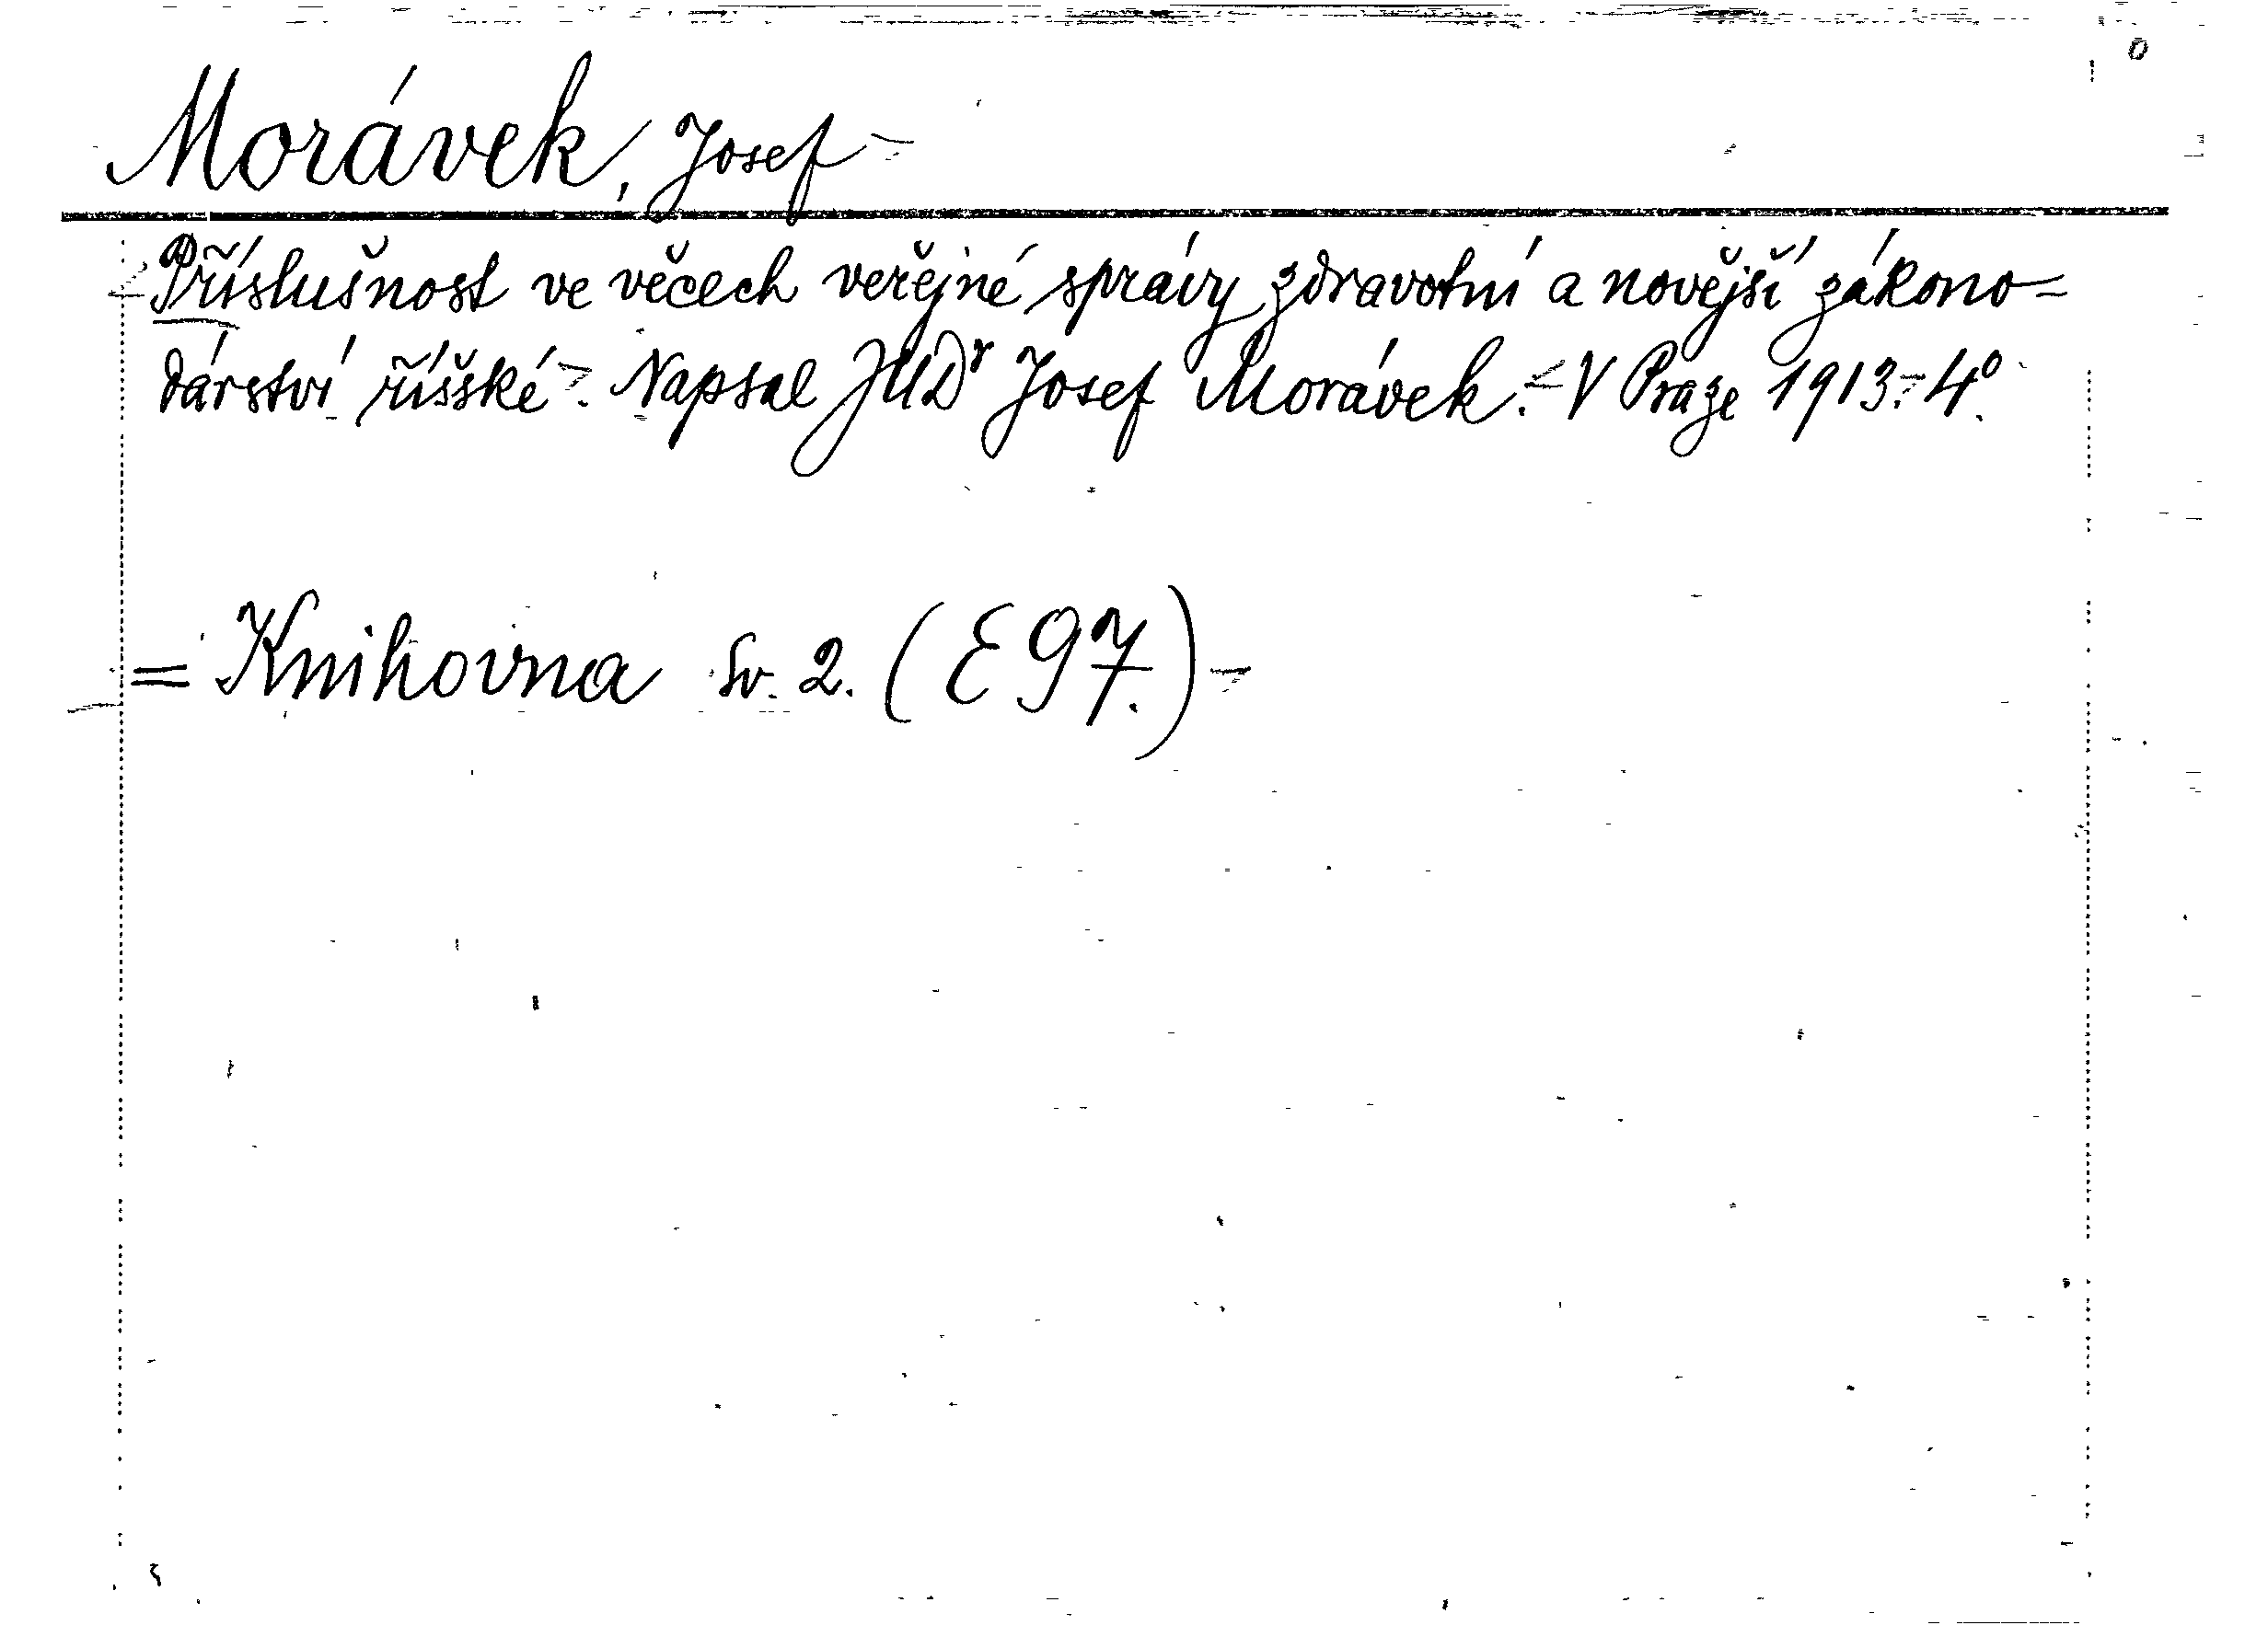 Morávek, Josef
Příslušnost ve věcech veřejné správy zdravotní a novější zákono=
dárství říšské. Napsal JUDr Josef Morávek. V Praze 1913. 4°.
= Knihovna sv. 2. (E 97.)